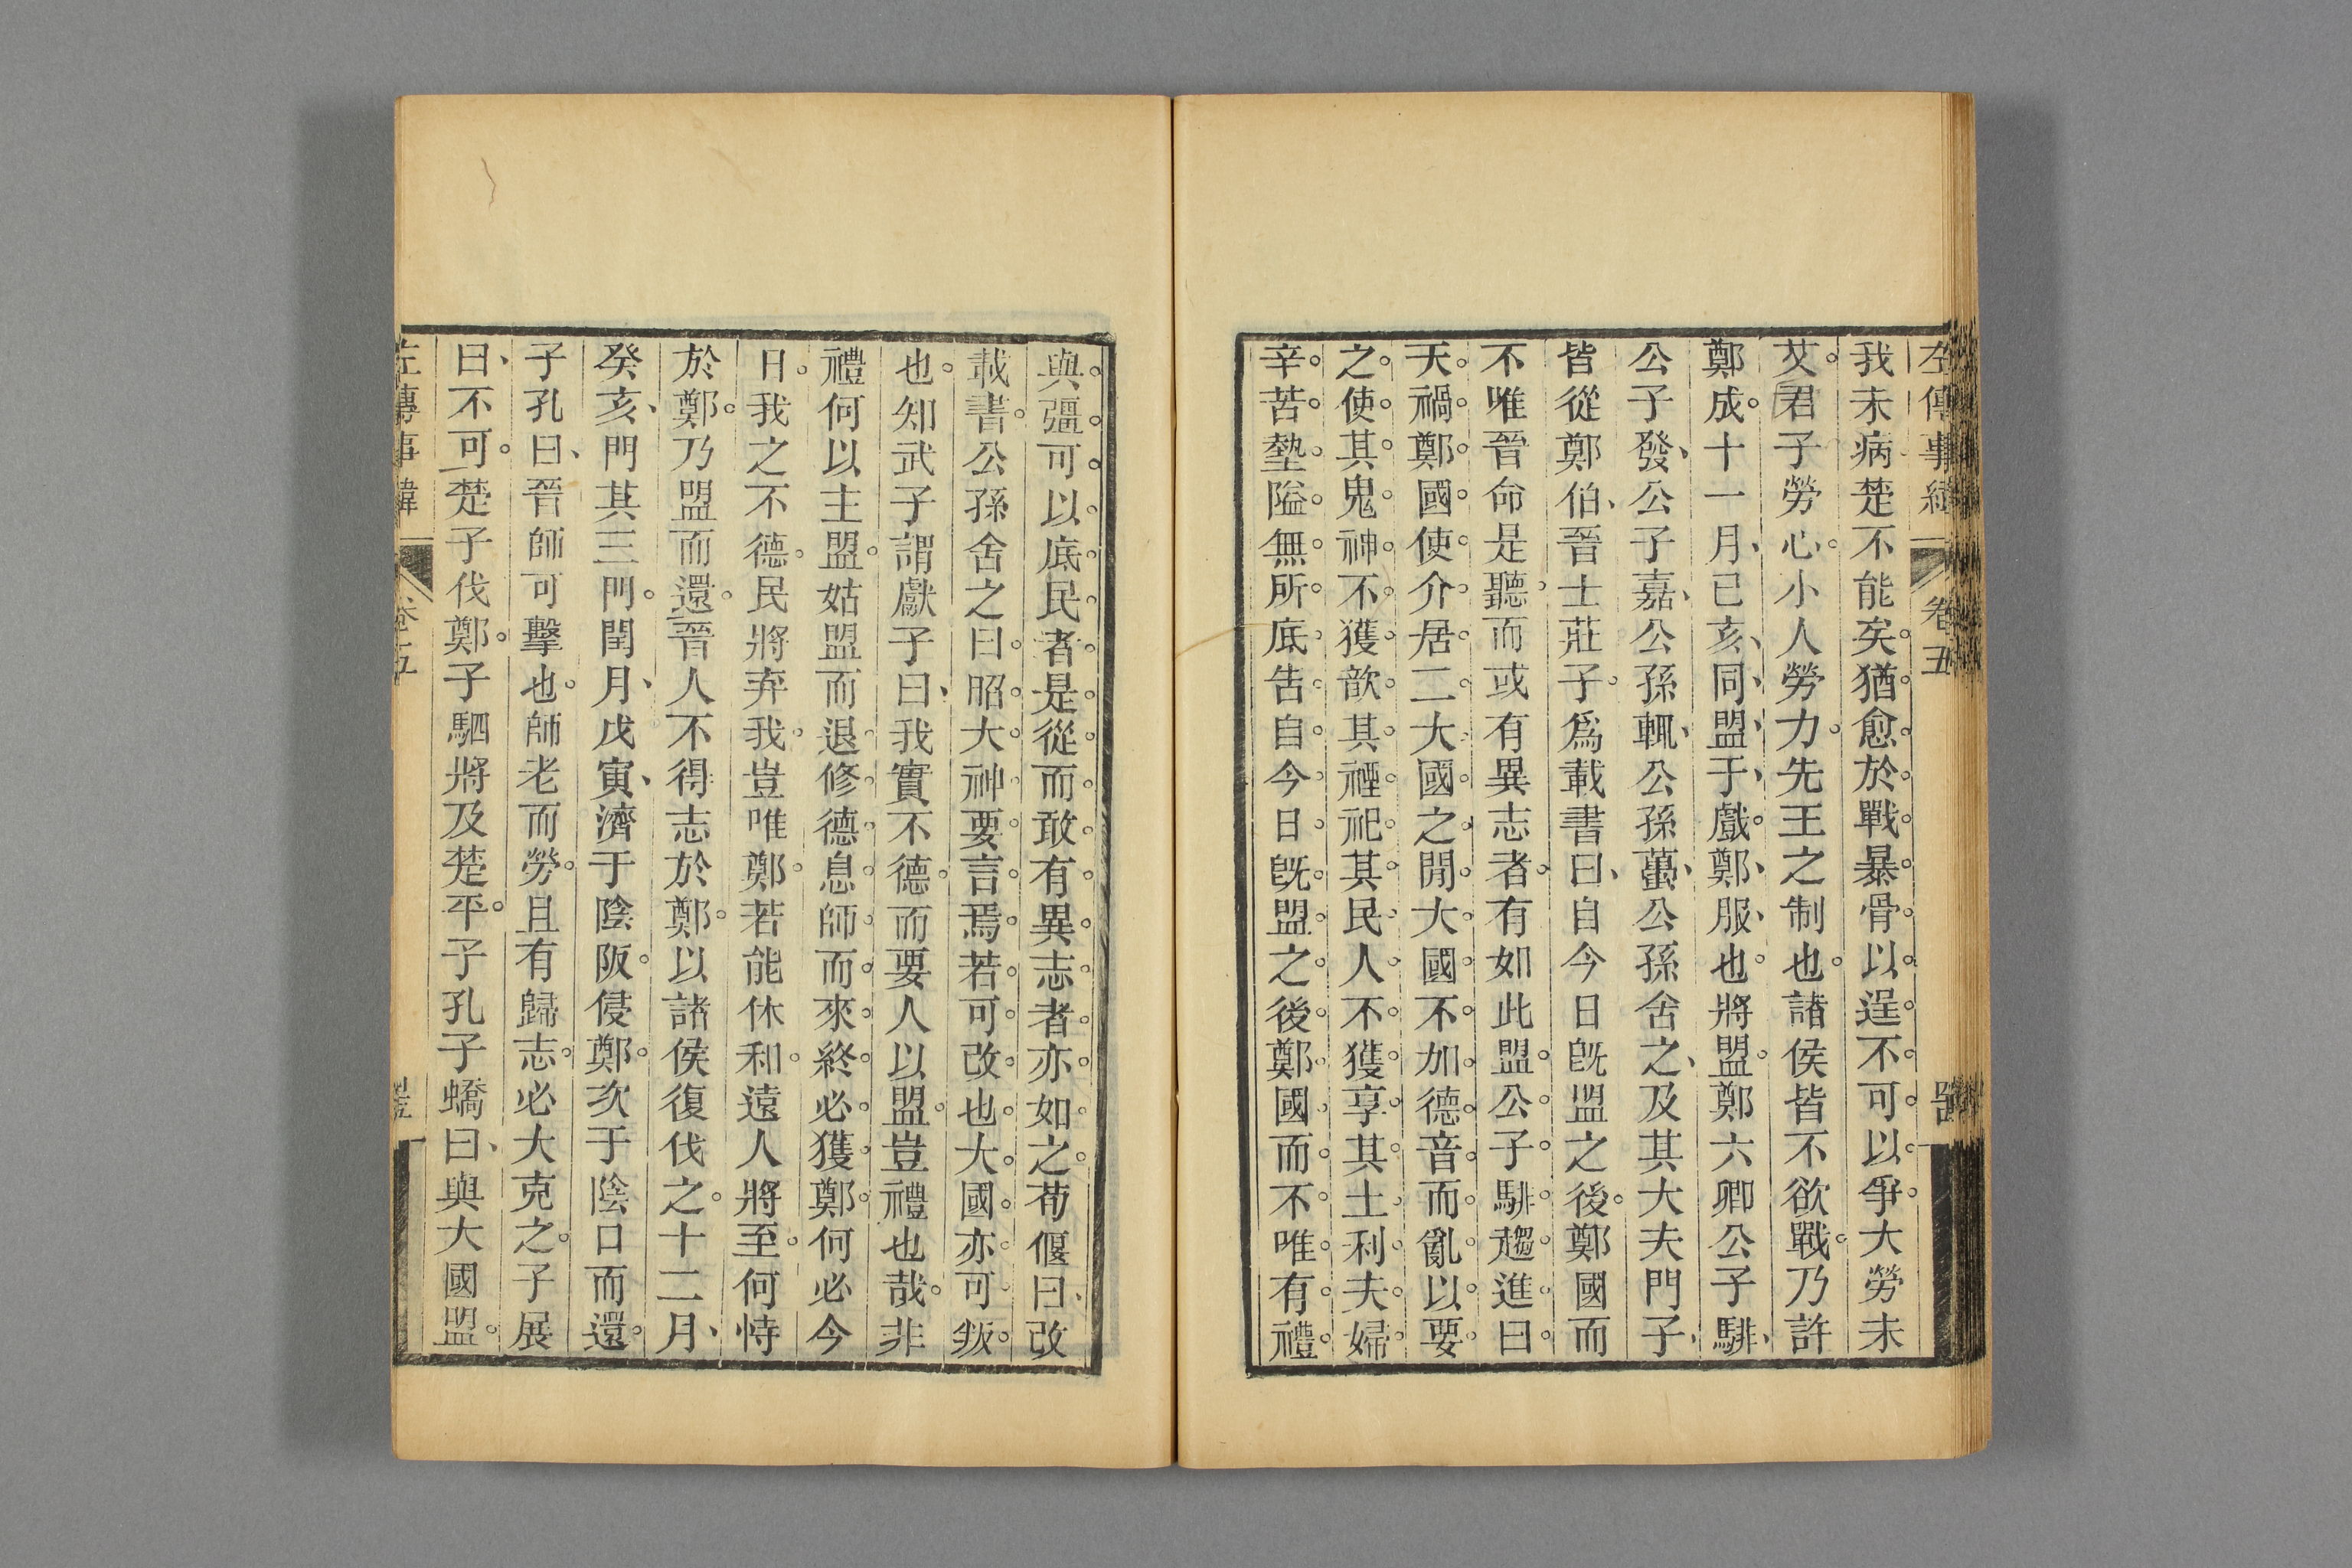 左傳事緯 卷五
我未病楚不能矣猶愈於戰暴骨以逞不可以爭大勞未
艾君子勞心小人勞力先王之制也諸侯皆不欲戰乃許
鄭成十一月己亥同盟于戲鄭服也將盟鄭六卿公子騑
公子發公子嘉公孫輒公孫蠆公孫舍之及其大夫門子
皆從鄭伯晉士莊子爲載書曰自今日旣盟之後鄭國而
不唯晉命是聽而或有異志者有如此盟公子騑趨進曰
天禍鄭國使介居二大國之閒大國不加德音而亂以要
之使其鬼神不獲歆其禋祀其民人不獲享其土利夫婦
辛苦墊隘無所底告自今日旣盟之後鄭國而不唯有禮
與彊可以庇民者是從而敢有異志者亦如之荀偃曰改
載書公孫舍之曰昭大神要言焉若可改也大國亦可叛
也知武子謂獻子曰我實不德而要人以盟豈禮也哉非
禮何以主盟姑盟而退修德息師而來終必獲鄭何必今
日我之不德民將弃我豈唯鄭若能休和遠人將至何恃
於鄭乃盟而還晉人不得志於鄭以諸侯復伐之十二月
癸亥門其三門閏月戊寅濟于陰阪侵鄭次于陰口而還
子孔曰晉師可擊也師老而勞且有歸志必大克之子展
曰不可楚子伐鄭子駟將及楚平子孔子蟜曰與大國盟
左傳事緯 卷五